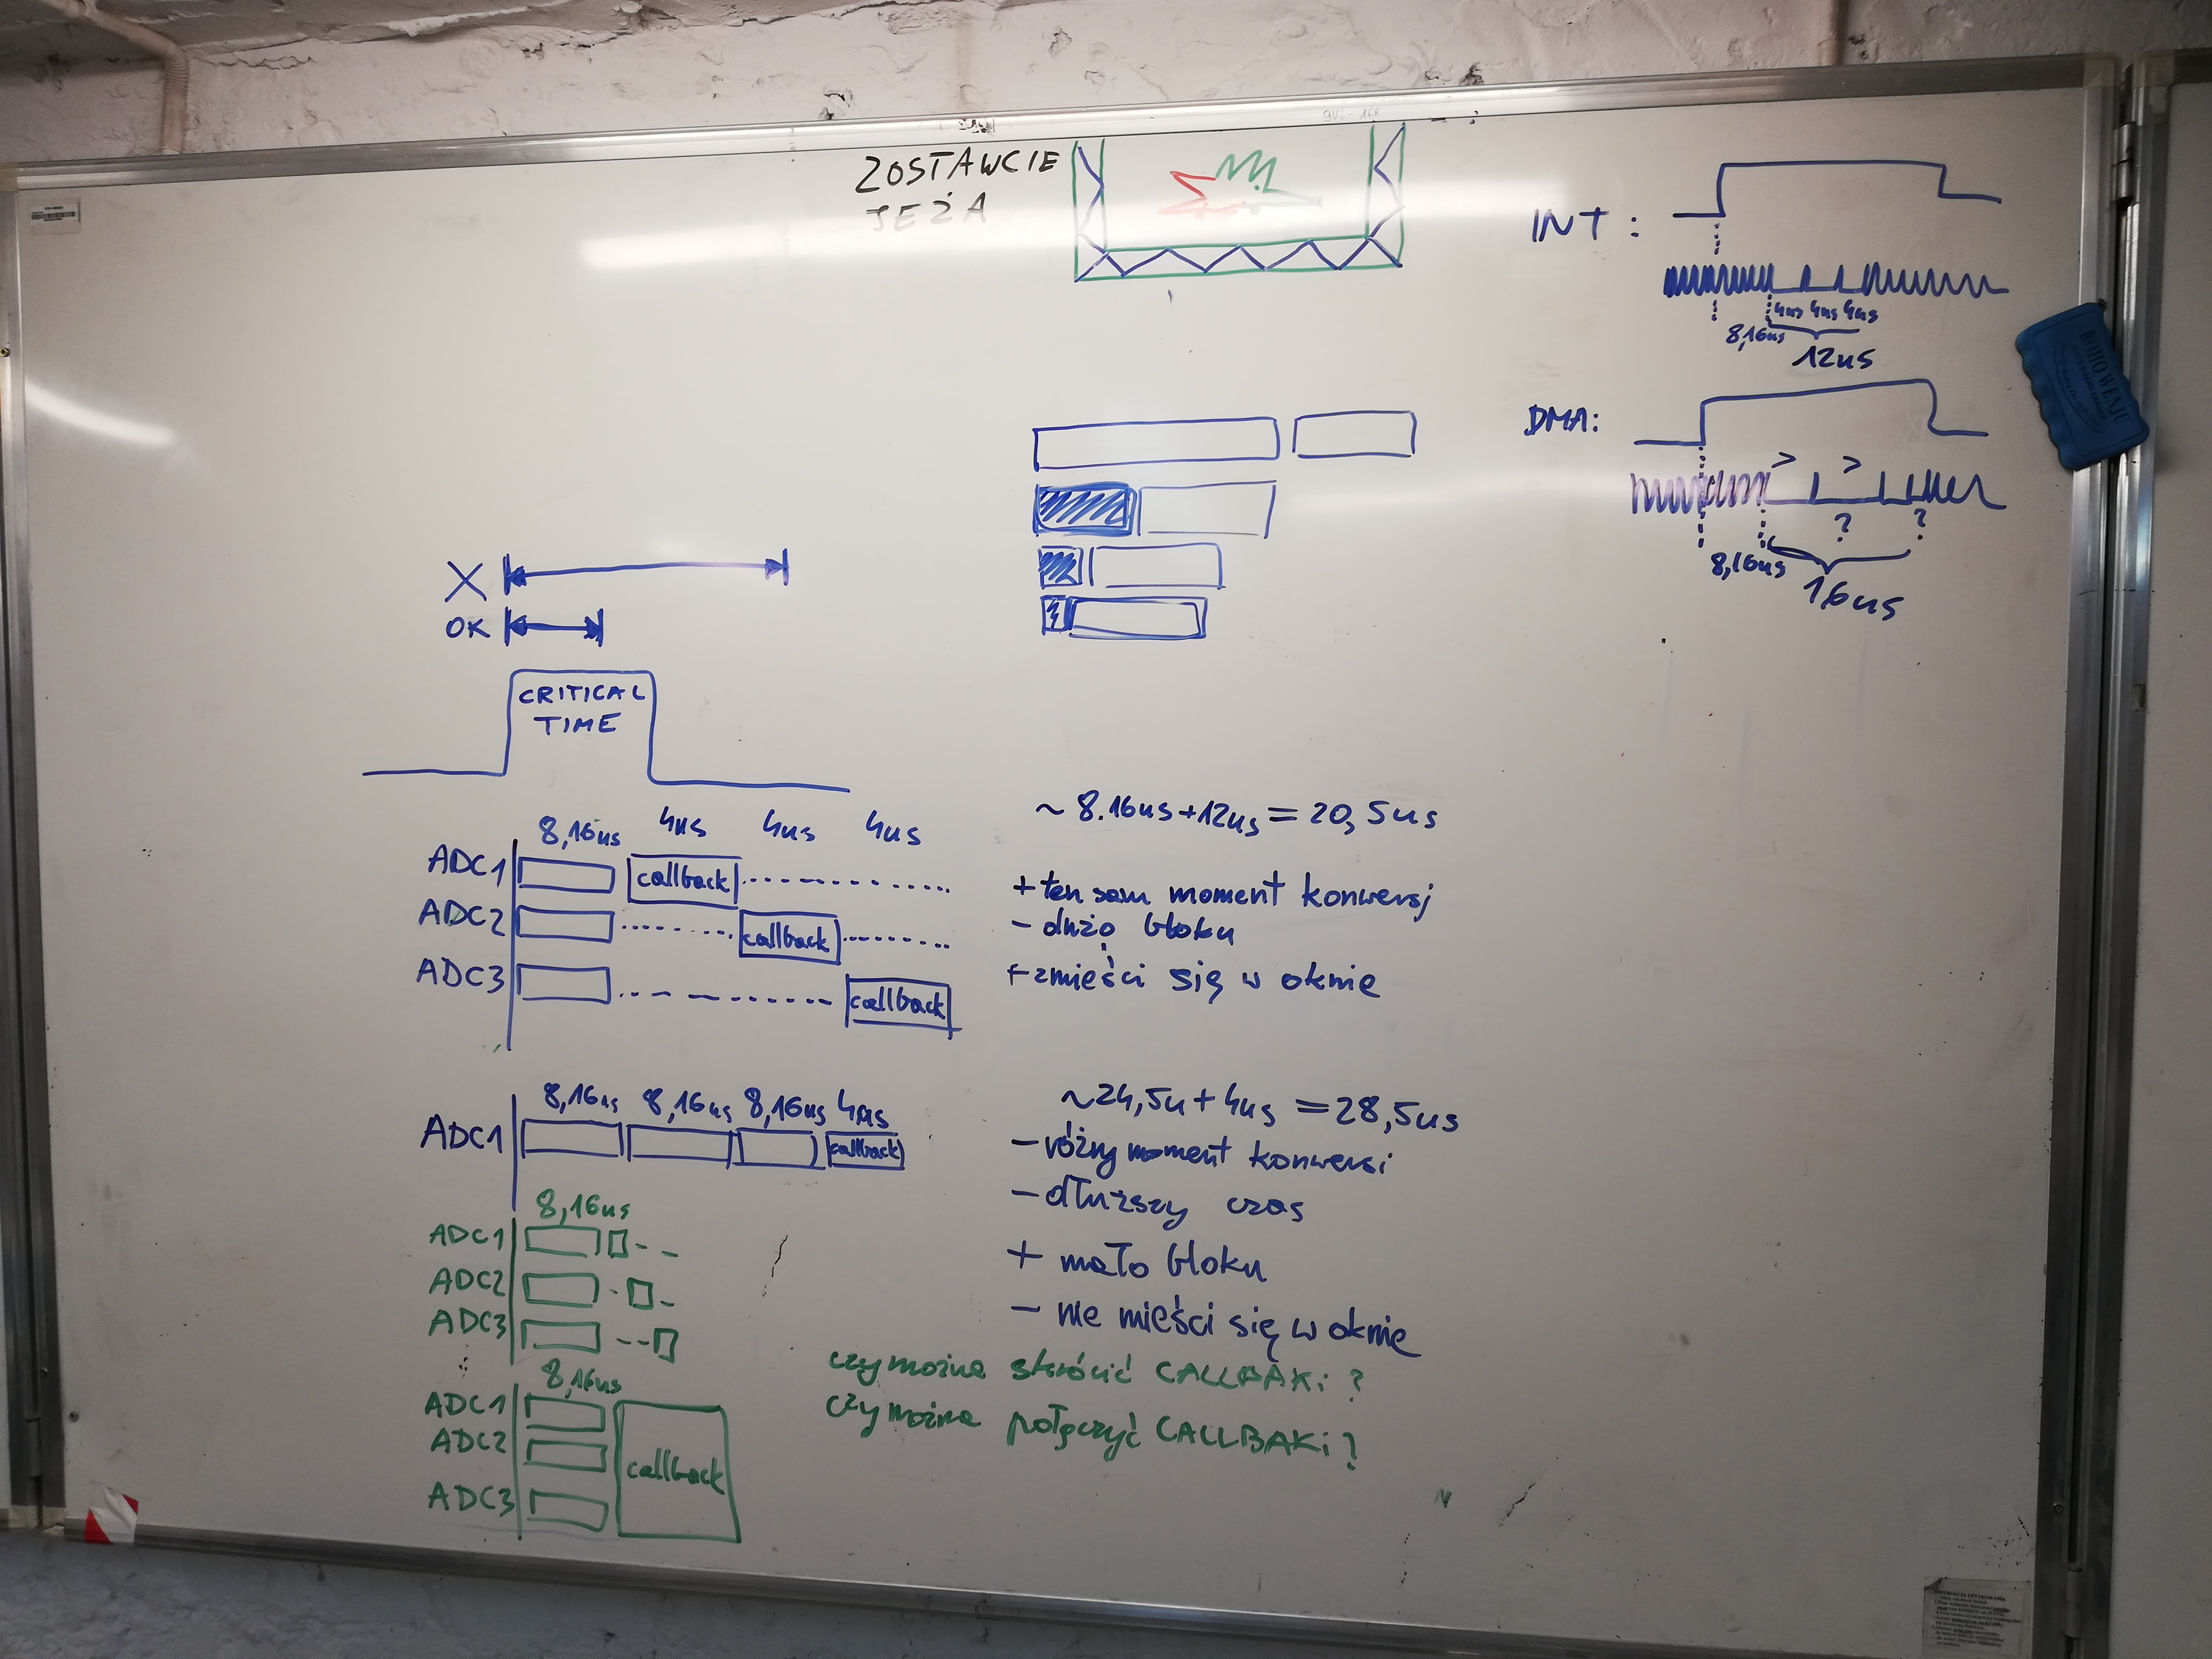 ZOSTAWCIE
JEŻA
INT :
4us 4us 4us
8,16us
12us
DMA:
> >
? ?
8,16us
16us
X
OK
CRITICAL
TIME
8,16us 4us 4us 4us
ADC1 callback
ADC2 callback
ADC3 callback
~ 8.16us+12us = 20,5us
+ ten sam moment konwersj
- dużo bloku
+ zmieści się w oknie
8,16us 8,16us 8,16us 4us
ADC1 callback
~24,5u + 4us = 28,5us
- różny moment konwersi
- dłuższy czas
+ mało bloku
- nie mieści się w oknie
8,16us
ADC1
ADC2
ADC3
czy można skrócić CALLBAKi ?
czy można połączyć CALLBAKi ?
8,16us
ADC1
ADC2
callback
ADC3
BOHOWENJU